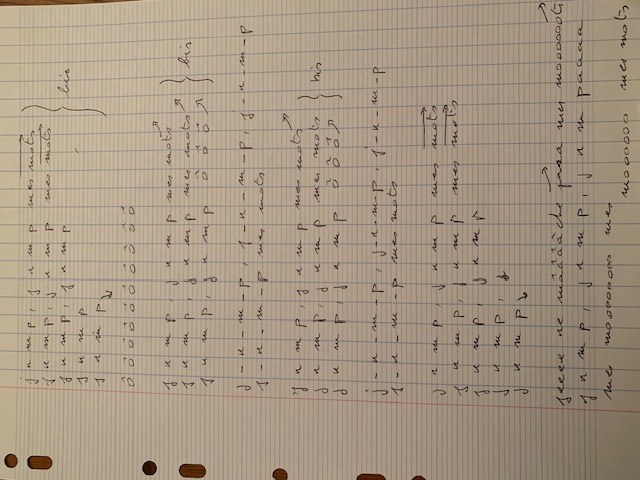 j n m p, j n m p mes mots
j n m p, j n m p mes mots
j n m p, j n m p
j n m p
j n m p
bis
ô ô ô ô ô ô ô ô ô ô
j n m p, j n m p mes mots
j n m p, j n m p mes mots
j n m p, j n m p ô ô ô ô
bis
j-n-m-p, j-n-m-p, j-n-m-p
j-n-m-p mes mots
j n m p, j n m p mes mots
j n m p, j n m p mes mots
j n m p, j n m p ô ô ô
bis
j-n-m-p, j-n-m-p, j-n-m-p
j-n-m-p mes mots
j n m p, j n m p mes mots
j n m p, j n m p mes mots
j n m p, j n m p
j n m p, j
j n m p
jeeee ne mâââââche mes mooooooots
j n m p, j n m p, j n m paaaaa
mes mooooooo mes mooooooo mes mots